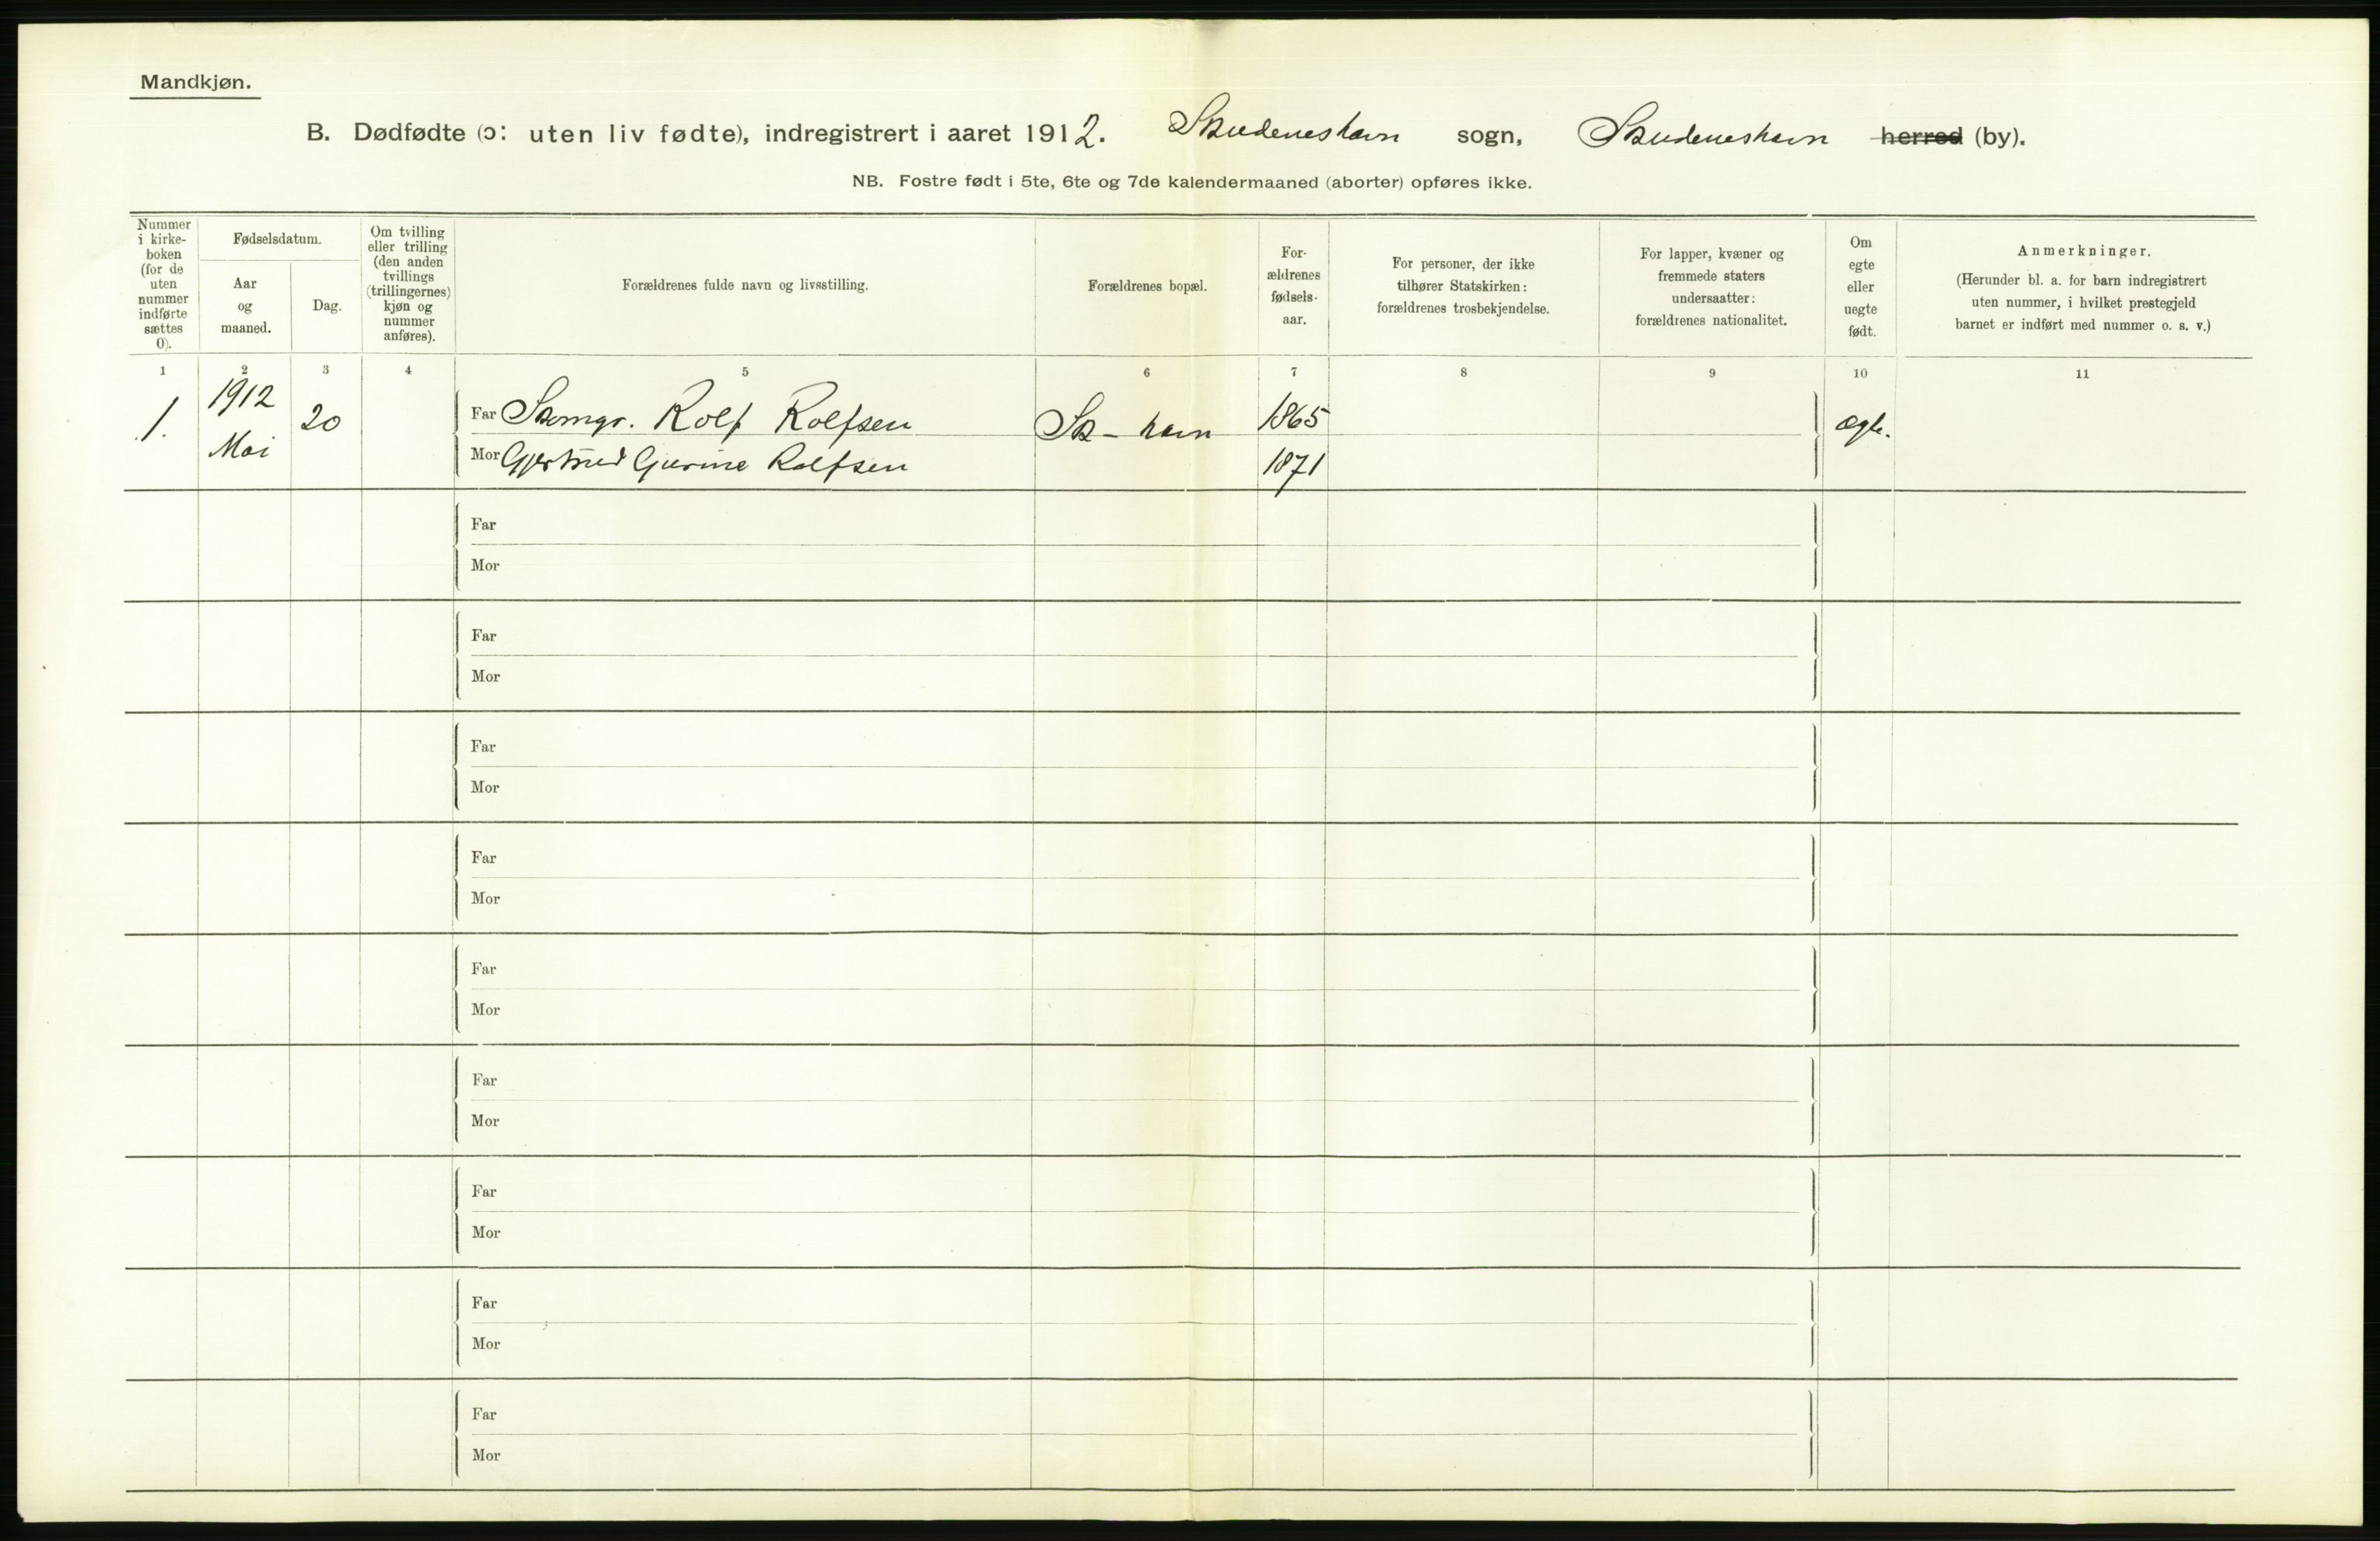 Mandkjøn.
B. Dødfødte (ɔ: uten liv fødte), indregistrert i aaret 1912. Skudeneshavn sogn, Skudeneshavn herred (by).
NB. Fostre født i 5te, 6te og 7de kalendermaaned (aborter) opføres ikke.
Nummer
i kirke-
boken
(for de
uten
nummer
indførte
sættes
0).
Fødselsdatum.
Aar
og
maaned.
Dag.
Om tvilling
eller trilling
(den anden
tvillings
(trillingernes)
kjøn og
nummer
anføres).
Forældrenes fulde navn og livsstilling.
Forældrenes bopæl.
For-
ældrenes
fødsels-
aar.
For personer, der ikke
tilhører Statskirken:
forældrenes trosbekjendelse.
For lapper, kvæner og
fremmede staters
undersaatter:
forældrenes nationalitet.
Om
egte
eller
uegte
født.
Anmerkninger.
(Herunder bl. a. for barn indregistrert
uten nummer, i hvilket prestegjeld
barnet er indført med nummer o. s. v.)
1 2 3 4 5 6 7 8 9 10 11
1. 1912 20 Far Skomgr. Rolf Rolfsen Sk-havn 1865 ægte.
Mai Mor Gjertrud Gurine Rolfsen 1871
Far
Mor
Far
Mor
Far
Mor
Far
Mor
Far
Mor
Far
Mor
Far
Mor
Far
Mor
Far
Mor